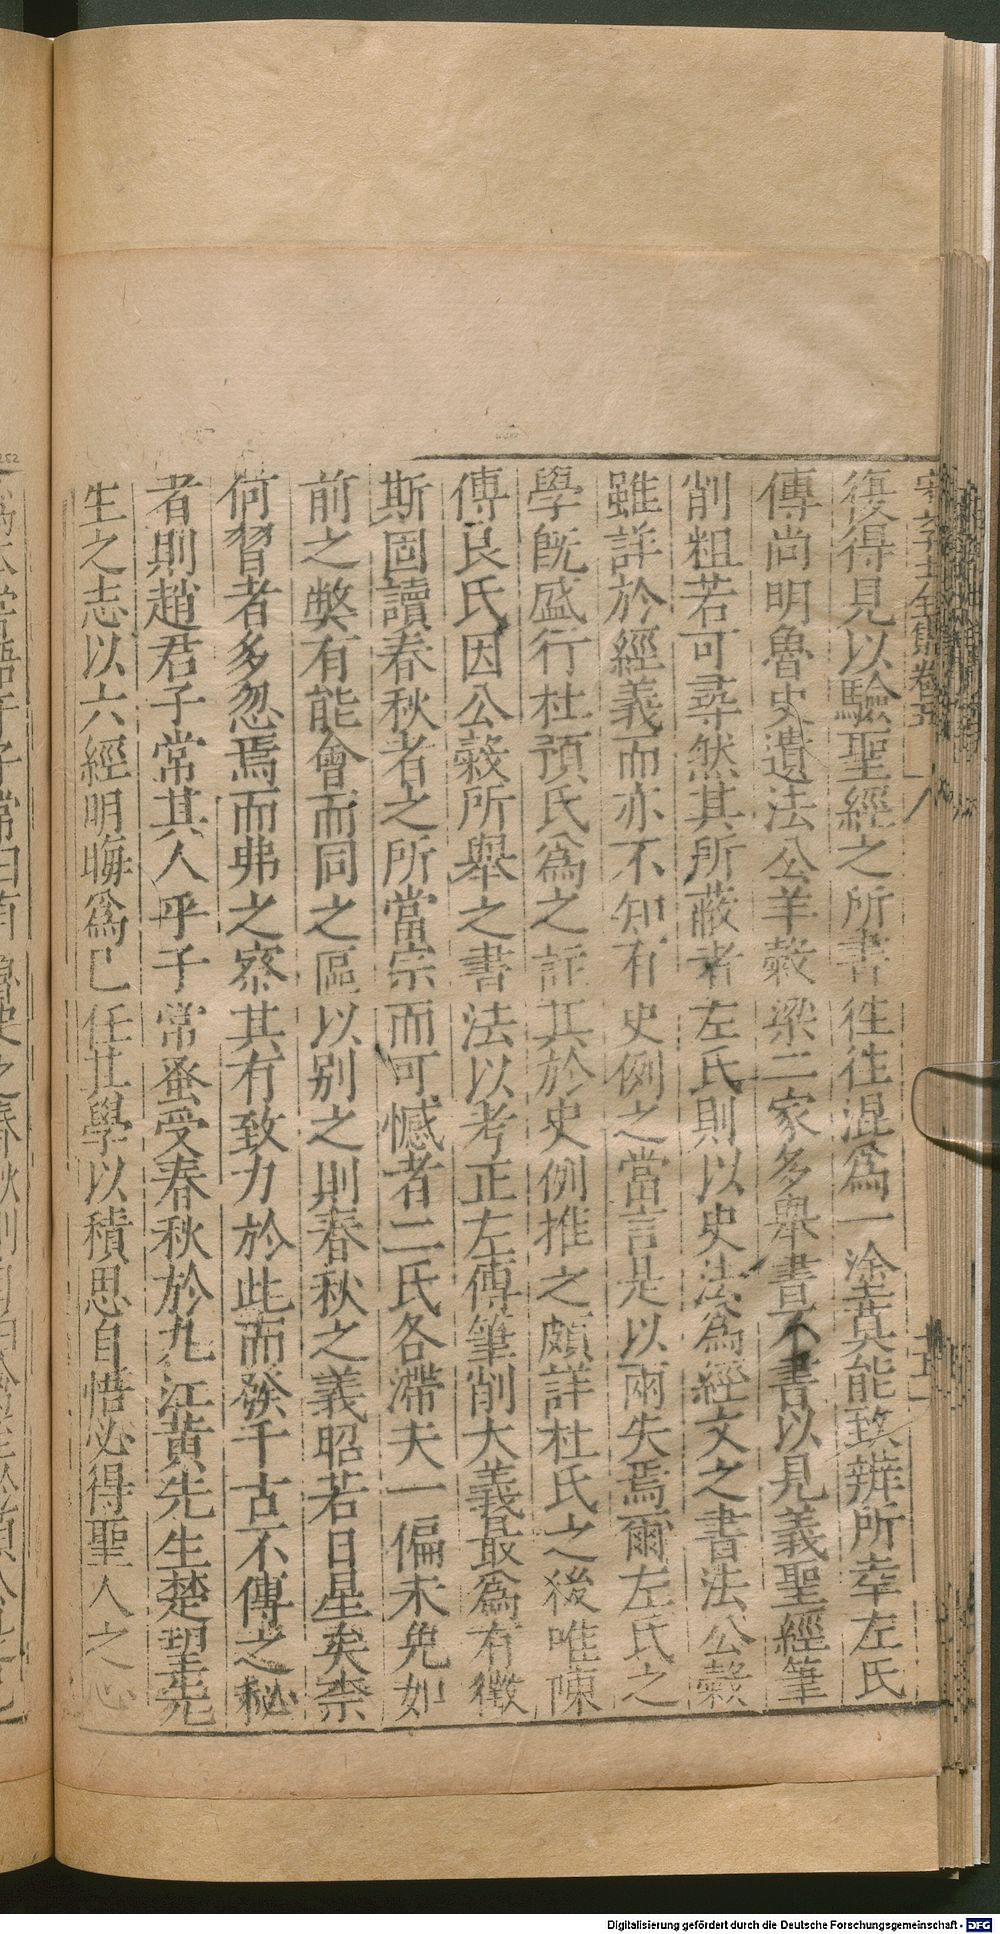 復得見以驗聖經之所書徃徃混爲一塗莫能致辨所幸左氏
傳尚明魯史遺法公羊糓梁二家多舉書不書以見義聖經筆
削粗若可尋然其所蔽者左氏則以史法爲經文之書法公糓
雖詳於經義而亦不知有史例之當言是以兩失焉爾左氏之
學旣盛行杜預氏爲之註其於史例推之頗詳杜氏之後唯陳
傅良氏因公糓所舉之書法以考正左傳筆削大義最爲有徵
斯固讀春秋者之所當宗而可憾者二氏各滯夫一偏未免如
前之獘有能會而同之區以別之則春秋之義昭若日星矣柰
何習者多忽焉而弗之察其有致力於此而發千古不傳之秘
者則趙君子常其人乎子常蚤受春秋於九江黃先生楚望先
生之志以六經明晦爲己任其學以積思自悟必得聖人之心
Digitalisierung gefördert durch die Deutsche Forschungsgemeinschaft - DFG